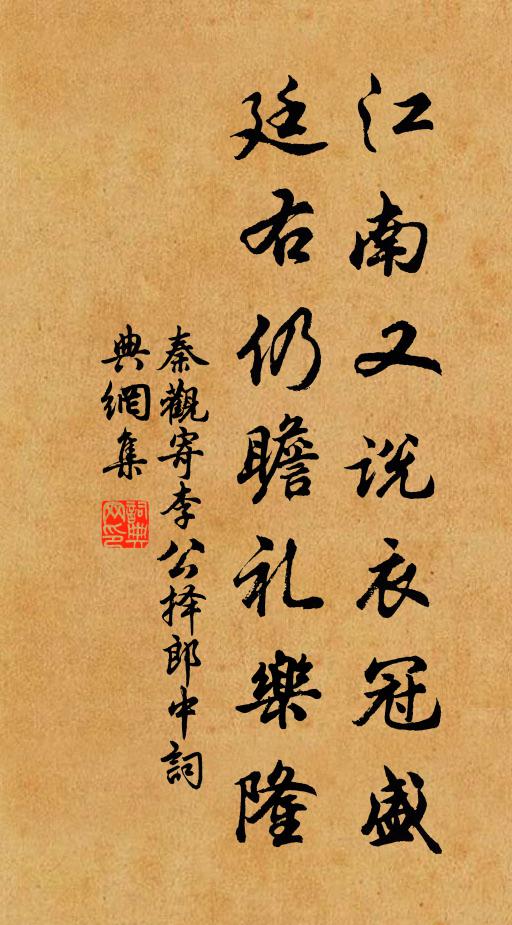 江南又说衣冠盛
廷右仍瞻礼樂隆
秦觀寄李公择郎中詞
典網集
詞典
网印